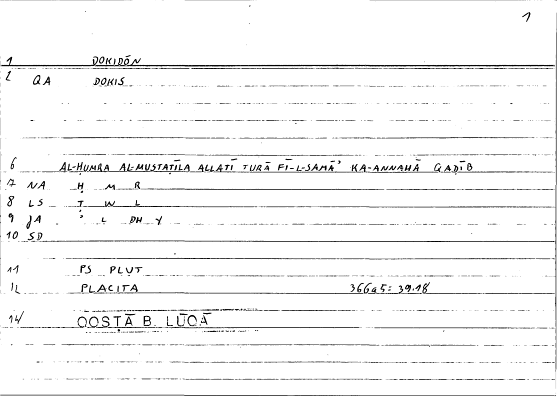 1
1 DOKIDŌN
2 QA DOKIS
6 AL-ḤUMRA AL-MUSTAṬĪLA ALLATĪ TURĀ FĪ-L-SAMĀʾ KA-ANNAHĀ QAḌĪB
7 NA Ḥ M R
8 LS Ṭ W L
9 JA ʾ L DH Y
10 SD
11 PS PLUT
12 PLACITA 366a5 = 39.18
14/ QOSṬĀ B. LŪQĀ